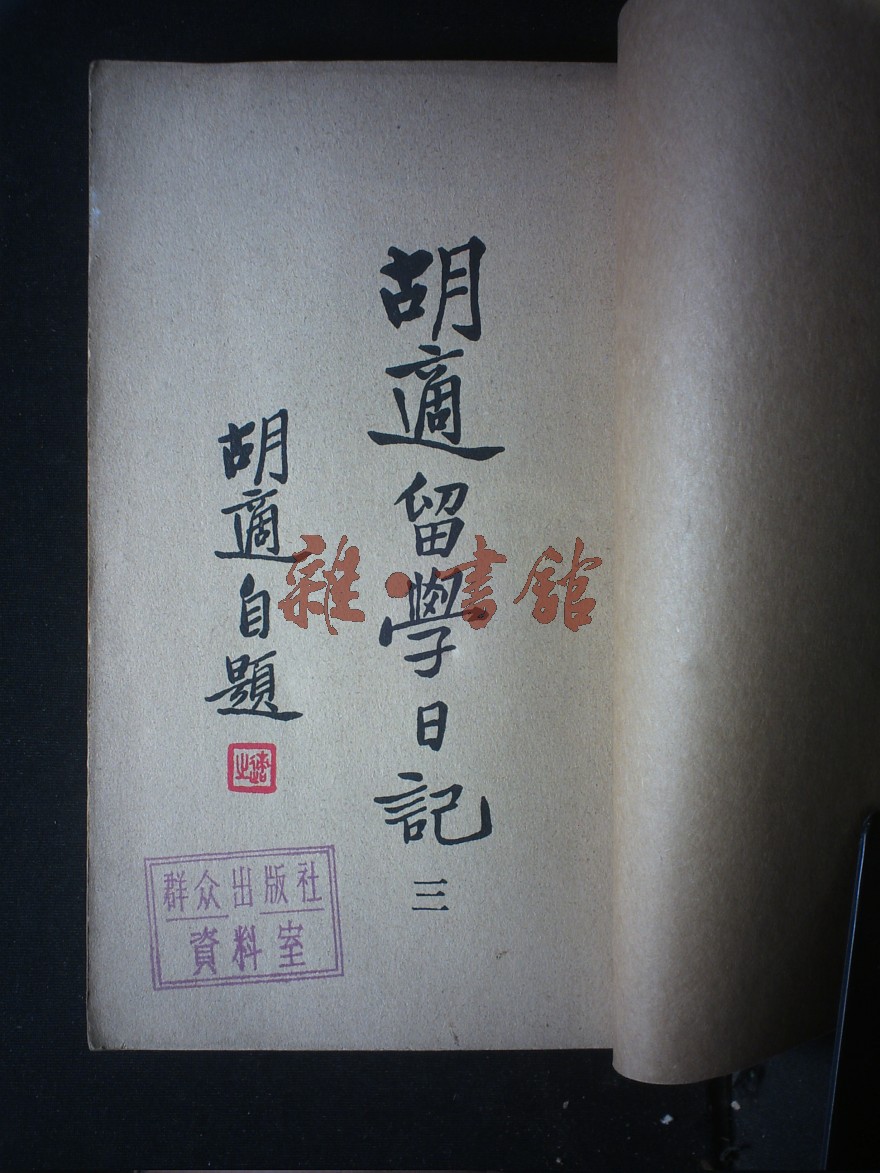 胡適留學日記
三
胡適自題
適之
群众出版社
資料室
雜·書館